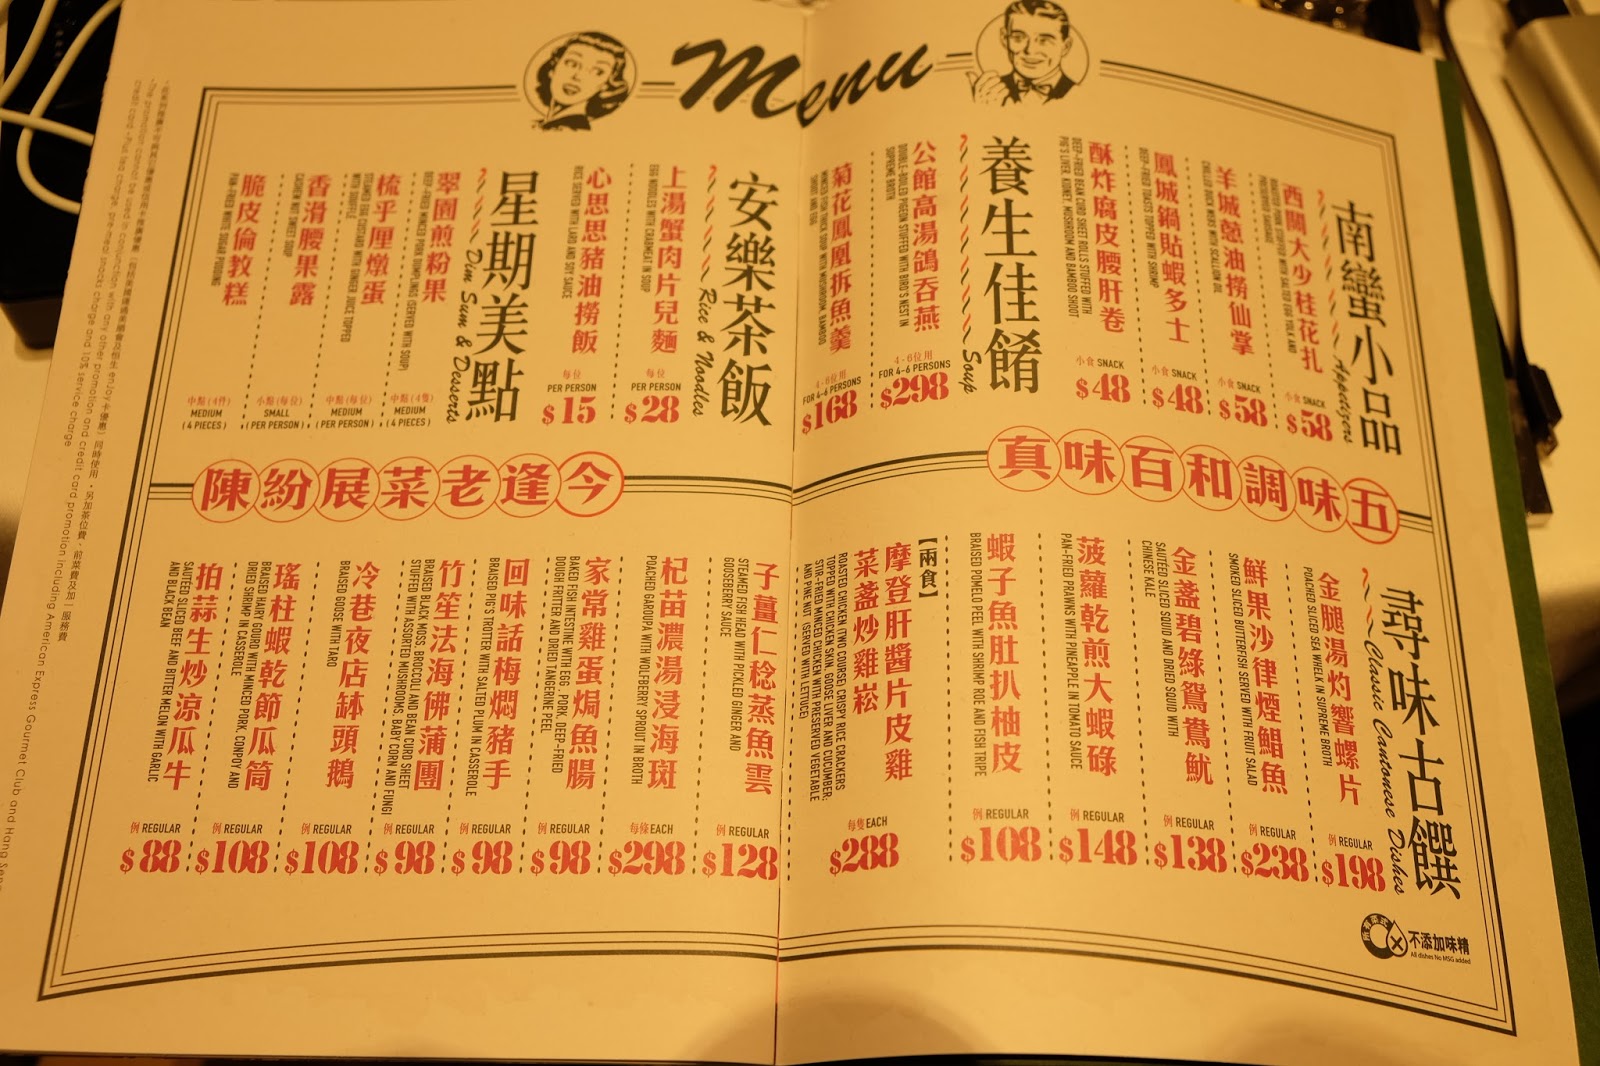 Menu
南蠻小品
Appetizers
西關大少桂花扎
小食 SNACK
$58
羊城蔥油撈仙掌
CHILLED DUCK WEBS WITH SCALLION OIL
小食 SNACK
$58
鳳城鍋貼蝦多士
DEEP-FRIED TOASTS TOPPED WITH SHRIMP
小食 SNACK
$48
酥炸腐皮腰肝卷
DEEP-FRIED BEAN CURD SHEET ROLLS STUFFED WITH
PIG'S LIVER, KIDNEY, MUSHROOM AND BAMBOO SHOOT
小食 SNACK
$48
養生佳餚
Soup
公館高湯鴿吞燕
DOUBLE-BOILED PIGEON STUFFED WITH BIRD'S NEST IN
SUPREME BROTH
4-6位用
FOR 4-6 PERSONS
$298
菊花鳳凰拆魚羹
4-6位用
FOR 4-6 PERSONS
$168
安樂茶飯
Rice & Noodles
上湯蟹肉片兒麵
EGG NOODLES WITH CRABMEAT IN SOUP
每位
PER PERSON
$28
心思思豬油撈飯
RICE SERVED WITH LARD AND SOY SAUCE
每位
PER PERSON
$15
星期美點
Dim Sum & Desserts
翠園煎粉果
DEEP-FRIED MINCED PORK DUMPLINGS (SERVED WITH SOUP)
中點(4隻)
MEDIUM
(4 PIECES)
梳乎厘燉蛋
STEAMED EGG CUSTARD WITH GINGER JUICE TOPPED
WITH SOUFFLE
中點(每位)
MEDIUM
(PER PERSON)
香滑腰果露
CASHEW NUT SWEET SOUP
小點(每位)
SMALL
(PER PERSON)
脆皮倫教糕
PAN-FRIED WHITE SUGAR PUDDING
中點(4件)
MEDIUM
(4 PIECES)
五味調和百味真
今逢老菜展紛陳
尋味古饌
Classic Cantonese Dishes
金腿湯灼響螺片
POACHED SLICED SEA WHELK IN SUPREME BROTH
例 REGULAR
$198
鮮果沙律煙鯧魚
SMOKED SLICED BUTTERFISH SERVED WITH FRUIT SALAD
例 REGULAR
$238
金盞碧綠鴛鴦魷
SAUTÉED SLICED SQUID AND DRIED SQUID WITH
CHINESE KALE
例 REGULAR
$138
菠蘿乾煎大蝦碌
PAN-FRIED PRAWNS WITH PINEAPPLE IN TOMATO SAUCE
例 REGULAR
$148
蝦子魚肚扒柚皮
BRAISED POMELO PEEL WITH SHRIMP ROE AND FISH TRIPE
例 REGULAR
$108
【兩食】
摩登肝醬片皮雞
菜盞炒雞崧
ROASTED CHICKEN (TWO COURSE: CRISPY RICE CRACKERS
TOPPED WITH CHICKEN SKIN, GOOSE LIVER AND CUCUMBER;
STIR-FRIED MINCED CHICKEN WITH PRESERVED VEGETABLE
AND PINE NUT (SERVED WITH LETTUCE)
每隻 EACH
$288
子薑仁稔蒸魚雲
STEAMED FISH HEAD WITH PICKLED GINGER AND
GOOSEBERRY SAUCE
例 REGULAR
$128
杞苗濃湯浸海斑
POACHED GAROUPA WITH WOLFBERRY SPROUT IN BROTH
每條 EACH
$298
家常雞蛋焗魚腸
BAKED FISH INTESTINE WITH EGG, PORK, DEEP-FRIED
DOUGH FRITTER AND DRIED TANGERINE PEEL
例 REGULAR
$98
回味話梅燜豬手
BRAISED PIG'S TROTTER WITH SALTED PLUM IN CASSEROLE
例 REGULAR
$98
竹笙法海佛蒲團
BRAISED BLACK MOSS, BROCCOLI AND BEAN CURD SHEET
STUFFED WITH ASSORTED MUSHROOMS, BABY CORN AND FUNGI
例 REGULAR
$98
冷巷夜店缽頭鵝
BRAISED GOOSE WITH TARO
例 REGULAR
$108
瑤柱蝦乾節瓜筒
BRAISED HAIRY GOURD WITH MINCED PORK, CONPOY AND
DRIED SHRIMP IN CASSEROLE
例 REGULAR
$108
拍蒜生炒涼瓜牛
SAUTÉED SLICED BEEF AND BITTER MELON WITH GARLIC
AND BLACK BEAN
例 REGULAR
$88
不添加味精
All dishes No MSG added